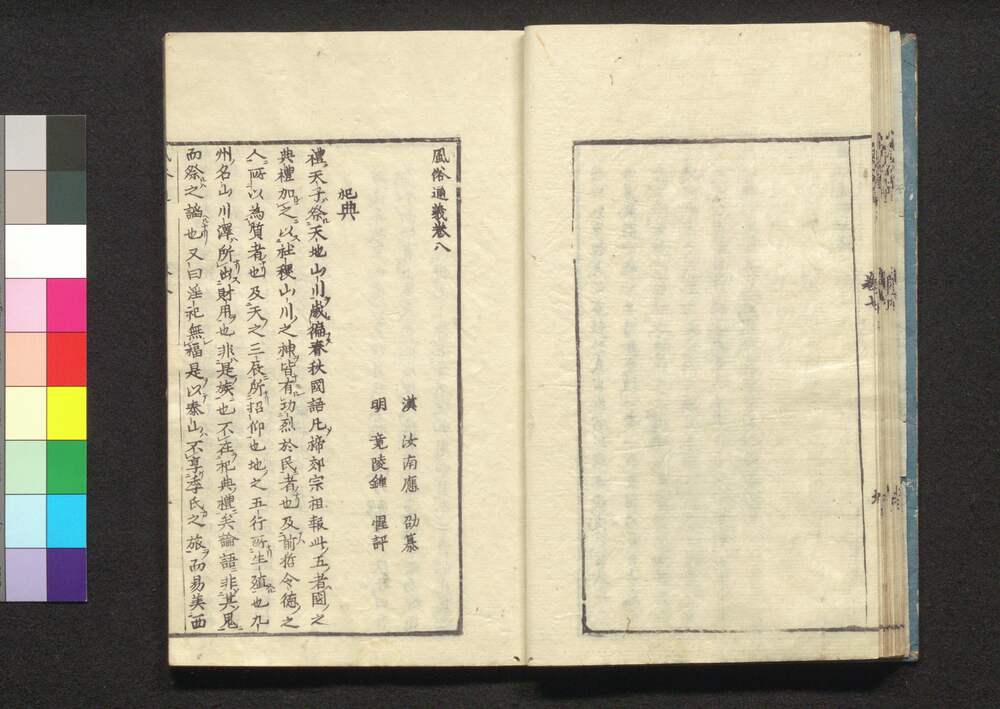 卷七
風俗通義卷八
漢　汝南應　劭纂
明　竟陵鍾　惺評
祀典
禮天子祭天地山川歲徧春秋國語凡禘郊宗祖報此五者國之
典禮加之以社稷山川之神皆有功烈於民者也及前哲令德之
人所以為質者也及天之三辰所招仰也地之五行所生殖也九
州名山川澤所出財用也非是族也不在祀典禮矣論語非其鬼
而祭之謟也又曰淫祀無福是以泰山不享李氏之旅而易美西